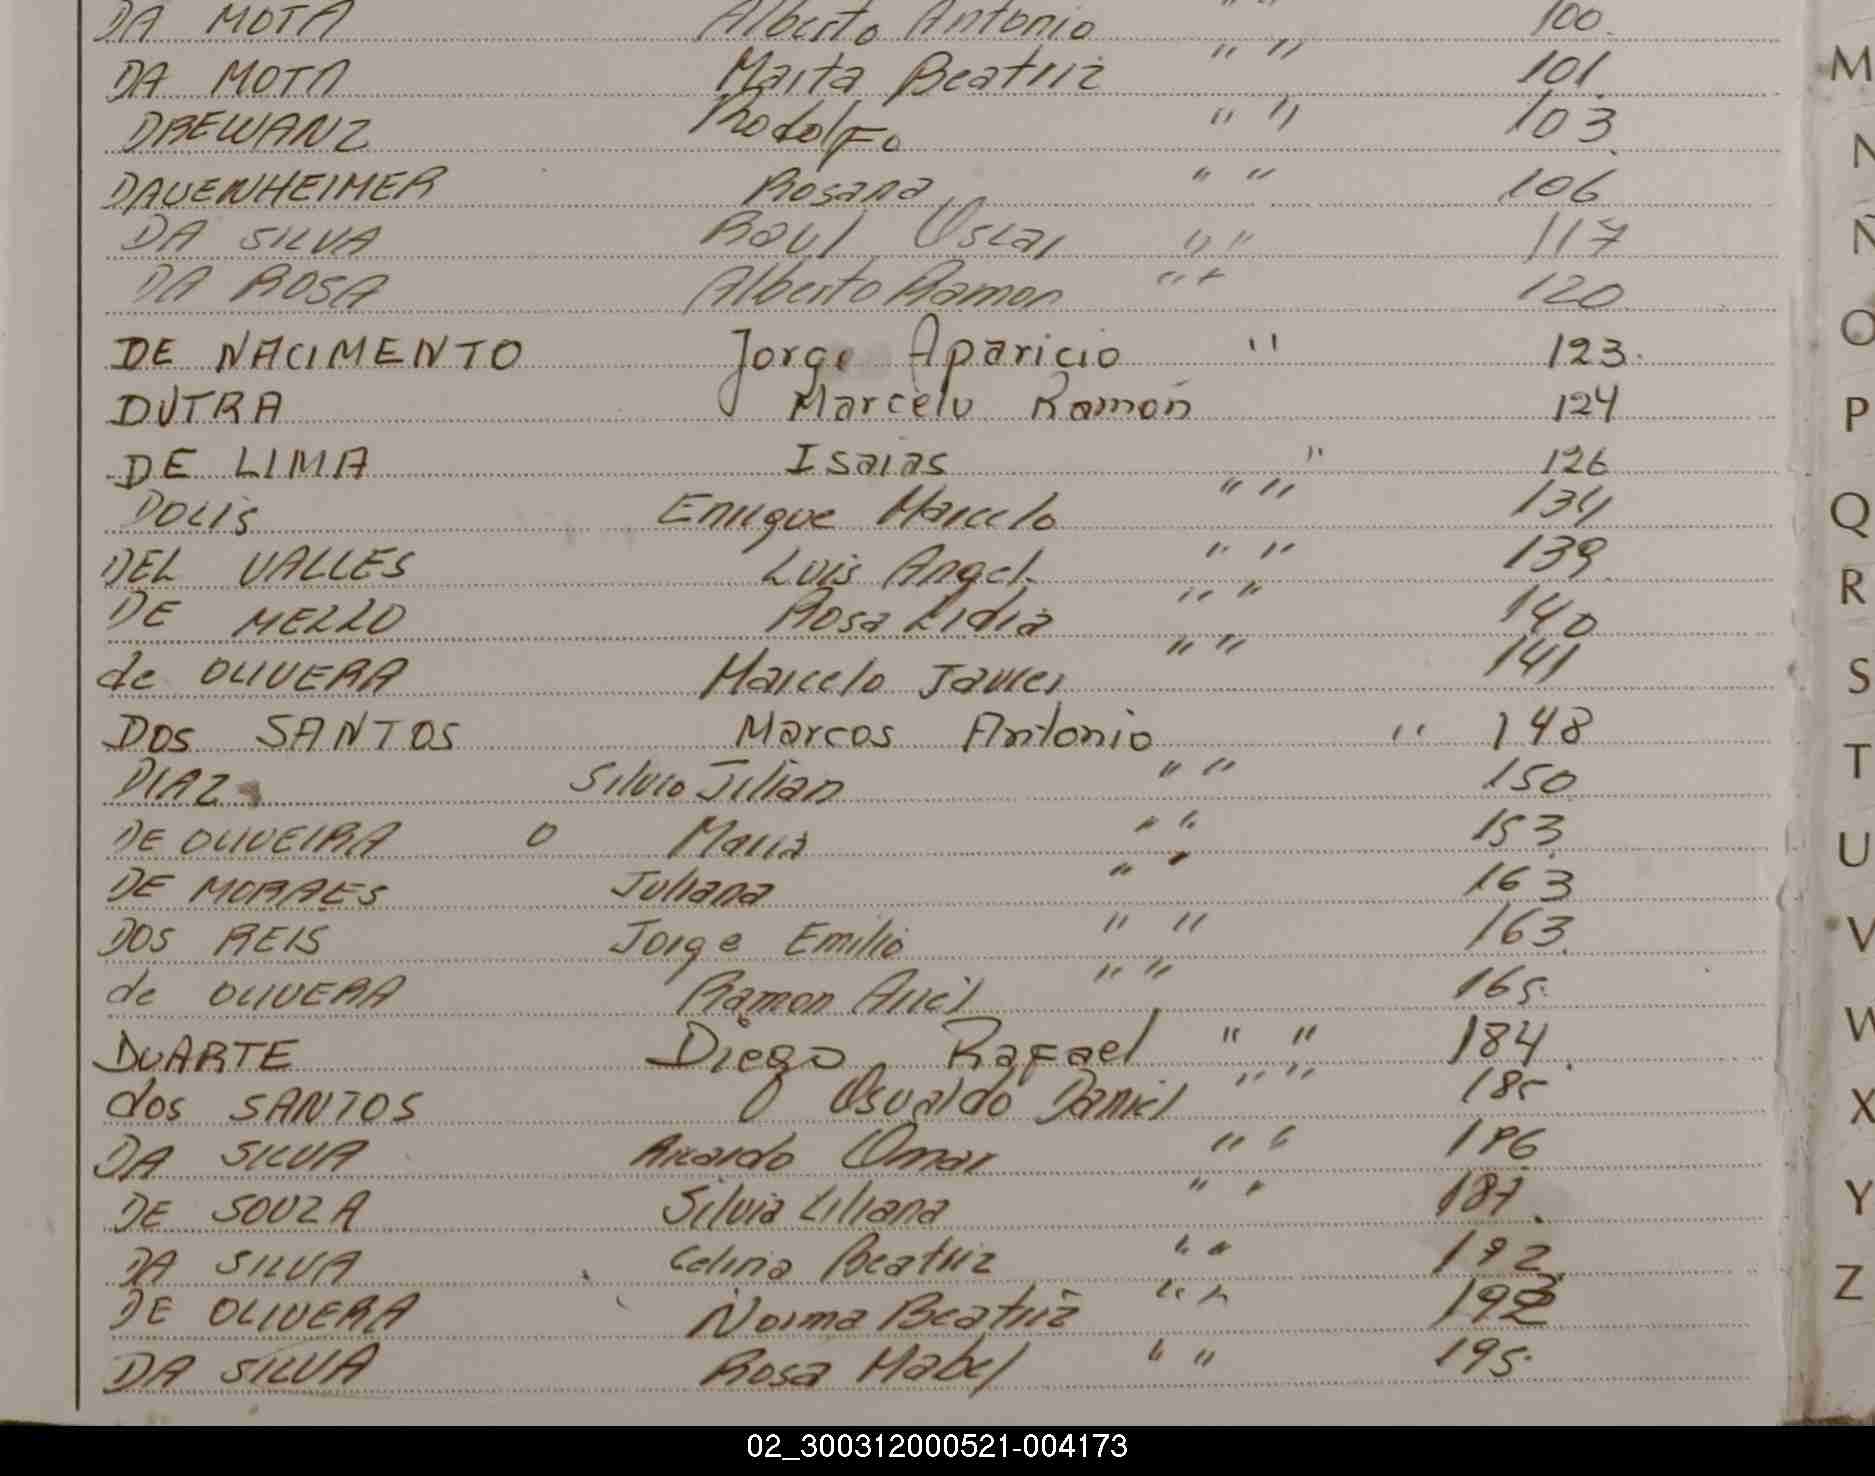 DA MOTA Alberto Antonio " " 100.
DA MOTA Marta Beatriz " " 101.
DREWANZ Rodolfo " " 103.
DAUENHEIMER Rosana " " 106
DA SILVA Raul Oscar " " 117
DA ROSA Alberto Ramon " " 120
DE NACIMENTO Jorge Aparicio " 123.
DUTRA Marcelo Ramón 124
DE LIMA Isaias " 126
DOLIS Enrique Marcelo " " 134
DEL VALLES Luis Angel. " " 139
DE MELLO Rosa Lidia " " 140
de OLIVERA Marcelo Javier " " 141
DOS SANTOS Marcos Antonio " 148
DIAZ Silvio Julian " " 150
DE OLIVEIRA O Maria " " 153
DE MORAES Juliana " " 163
DOS REIS Jorge Emilio " " 163.
de OLIVERA Ramon Ariel " " 165.
DUARTE Diego Rafael " " 184.
dos SANTOS Osvaldo Daniel " " 185
DA SILVA Ricardo Omar " " 186
DE SOUZA Silvia Liliana " " 187.
DA SILVA Celina Beatriz " " 192.
DE OLIVERA Norma Beatriz " "
DA SILVA Rosa Mabel " " 195.
M
N
Ñ
O
P
Q
R
S
T
U
V
W
X
Y
Z
02_300312000521-004173